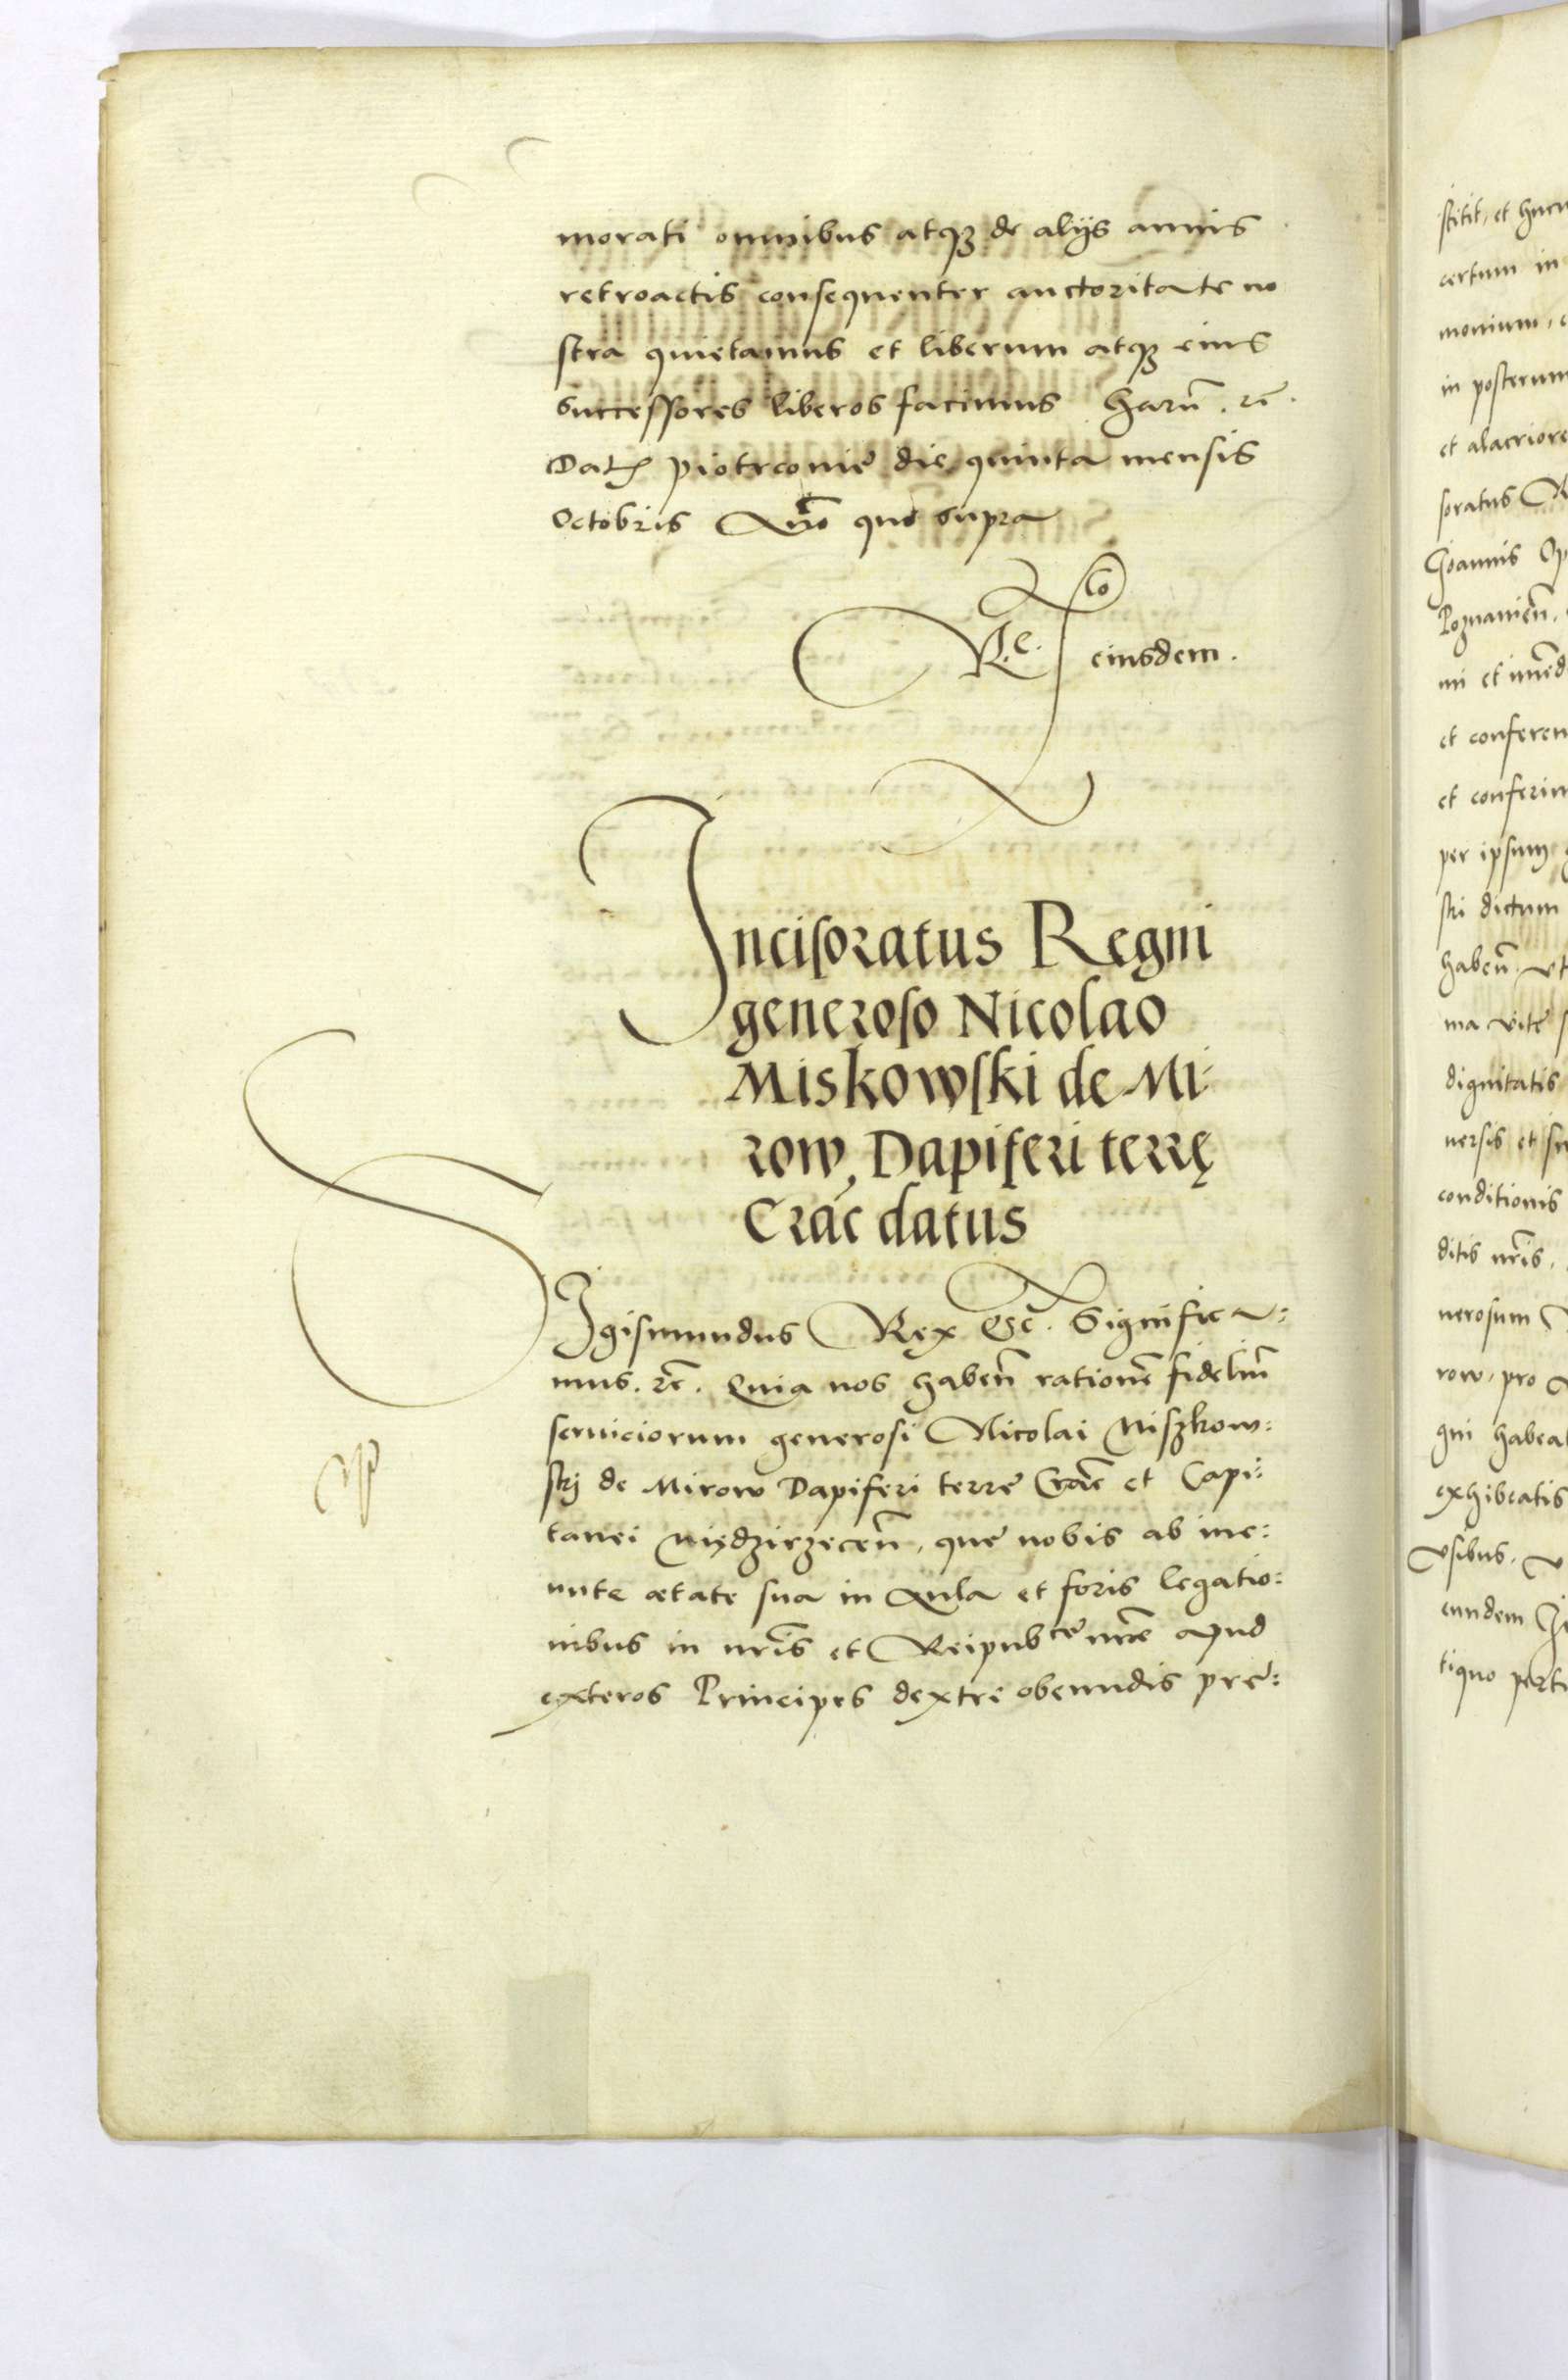 morati omnibus atqꝫ de alijs annis
retroactis consequenter auctoritate no
stra quietamus et liberum atqꝫ eius
successores liberos facimus Harũ. rẽ.
Datꝭ piotrconię die quinta mensis
Octobris Año quo supra
Rᵒ. eiusdem.
Incisoratus Regni
generoso Nicolao
Miskowski de Mi:
row, Dapiferi terrę
Crac̃ datus
Sigismundus Rex Etc̃. Significa:
mus. rẽ. Quia nos habeñ rationẽ fideliũ
seruiciorum generosi Nicolai Miszkow:
skj de Mirow Dapiferi terrę Crac̃ et Capi:
tanei Międzirzeceñ. quę nobis ab ine:
unte ætate sua in Aula et foris legatio:
nibus in nr̃is et Reipubᶜᵉ nr̃æ apud
exteros Principes dextre obeundis pre:
stitit, et hucu
certum in
monium,
in posterum
et alacriore
soratus
Joannis Op
Poznanieñ.
mi et
et conferen
et conferim
per ipsum
stri dictum
habeñ. vt
ma vitę
dignitatis
uersis et
conditionis
ditis nr̃is,
nerosum
row, pro
gni habea
exhibeatis
vsibus.
eundem
tiquo